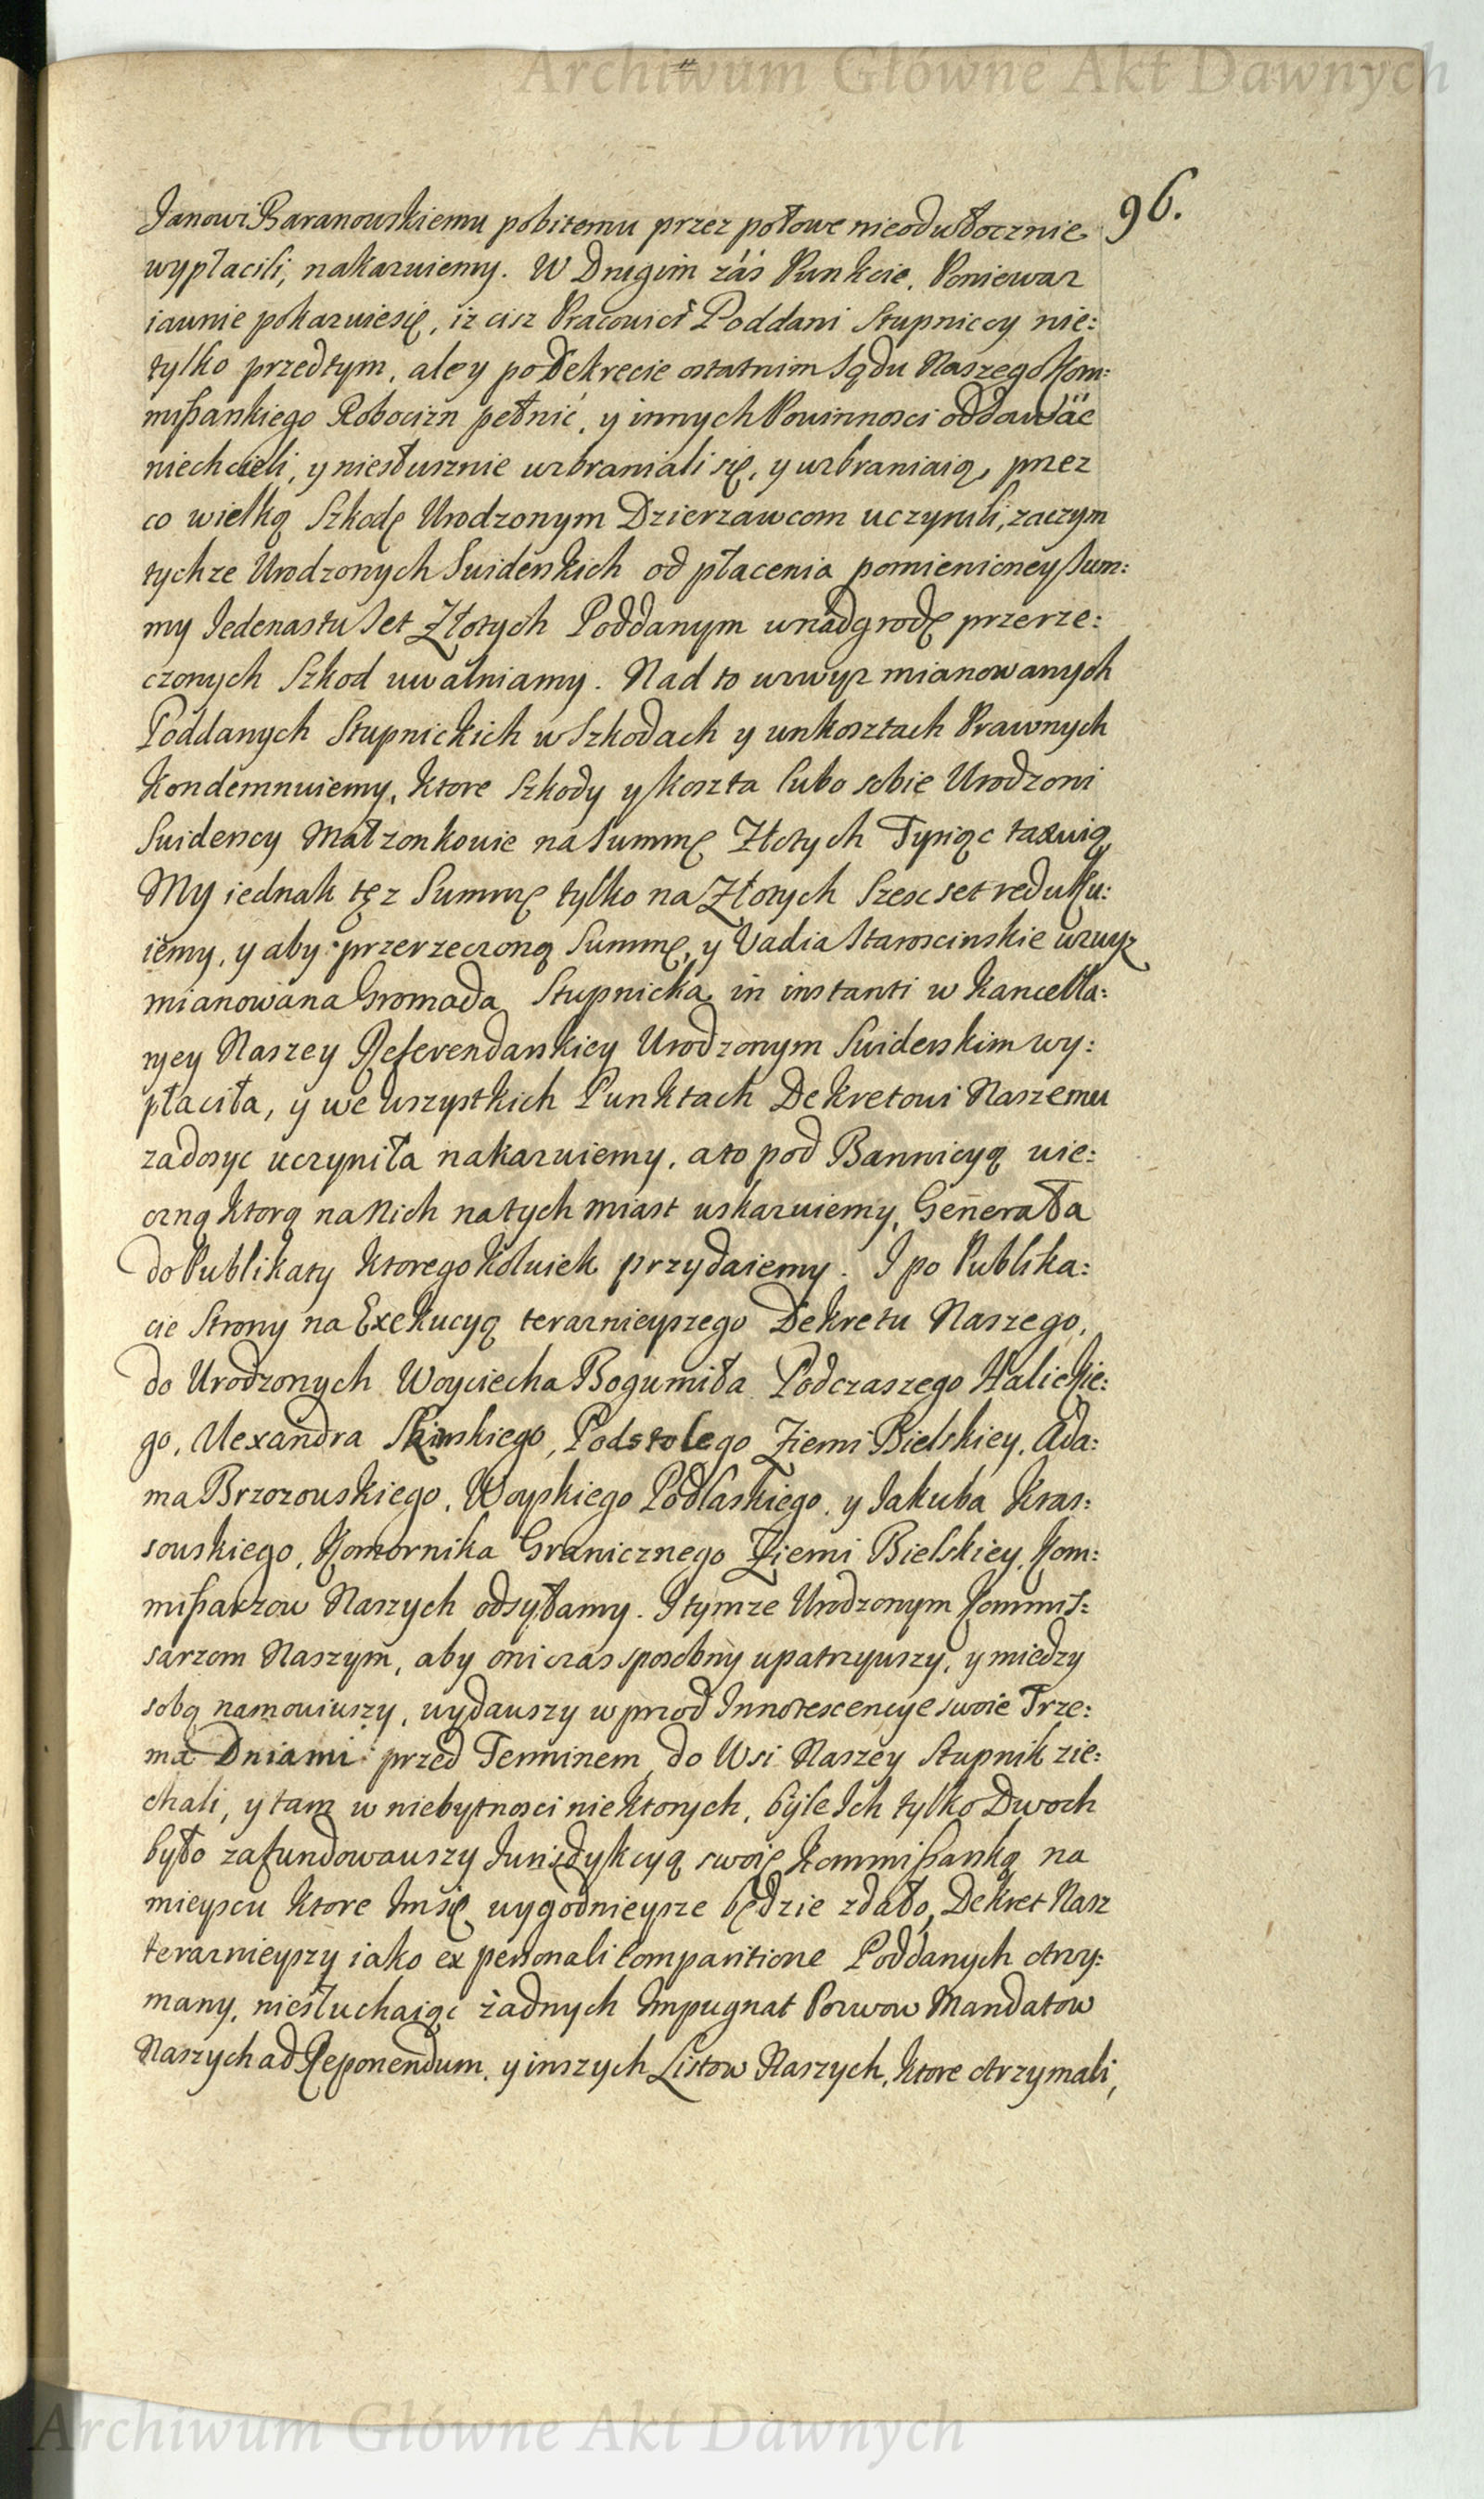 Archiwum Główne Akt Dawnych
96.
Janowi Baranowskiemu pobitemu przez połowe nieodwłocznie
wypłacili, nakazuiemy. W Drugim záś Punkcie, Poniewaz
iawnie pokazuiesię, iz cisz Pracowici Poddani Stupniccy nie:
tylko przedtym, ale y po Dekrecie ostatnim Sądu Naszego Kom:
mißarskiego Robocizn pełnić, y innych Powinnosci oddawać
niechcieli, y niesłusznie wzbraniali się, y wzbraniaią, przez
co wielką Szkodę Urodzonym Dzierzawcom uczynili, zaczym
tychze Urodzonych Swiderskich od płacenia pomienioney Sum:
my Jedenastu Set Złotych Poddanym wnadgrodę przerze:
czonych Szkod uwalniamy. Nad to wzwyz mianowanych
Poddanych Stupnickich w Szkodach y unkosztach Prawnych
Kondemnuiemy, ktore Szkody y koszta lubo sobie Urodzoni
Swidercy Małzonkowie na Summę Złotych Tysiąc taxuią,
My iednak tęz Summę tylko na Złotych Szesc set reduku:
iemy, y aby przerzeczoną Summę, y Vadia Staroscinskie wzwyz
mianowana Gromada Stupnicka in instanti w Kancella:
ryey Naszey Referendarskiey Urodzonym Swiderskim wy:
płaciła, y we wszystkich Punktach Dekretowi Naszemu
zadosyc uczyniła nakazuiemy, a to pod Bannicyą wie:
czną ktorą na Nich natych miast wskazuiemy, Generała
do Publikaty ktoregokolwiek przydaiemy. I po Publika:
cie Strony na Exekucyą terazniejszego Dekretu Naszego,
do Urodzonych Woyciecha Bogumiła Podczaszego Halickie:
go, Alexandra Skirskiego, Podstolego Ziemi Bielskiey, Ada:
ma Brzozowskiego, Woyskiego Podlaskiego, y Jakuba Kras:
sowskiego, Komornika Granicznego Ziemi Bielskiey, Kom:
mißarzow Naszych odsyłamy. I tymze Urodzonym Kommis:
sarzom Naszym, aby oni czas sposobny upatrzywszy, y miedzy
sobą namowiwszy, wydawszy wprzod Innotescencye swoie Trze:
ma Dniami przed Terminem, do Wsi Naszey Stupnik zie:
chali, y tam w niebytnosci niektorych, byle Ich tylko Dwoch
było zafundowawszy Jurisdykcyą swoię Kommißarską na
mieyscu ktore Imsię wygodnieysze będzie zdało, Dekret Nasz
teraznieyszy iako ex personali Comparitione Poddanych otrzy:
many, niesłuchaiąc żadnych Impugnat Pozwow Mandatow
Naszych ad Reponendum, y inszych Listow Naszych, ktore otrzymali,
Archiwum Główne Akt Dawnych